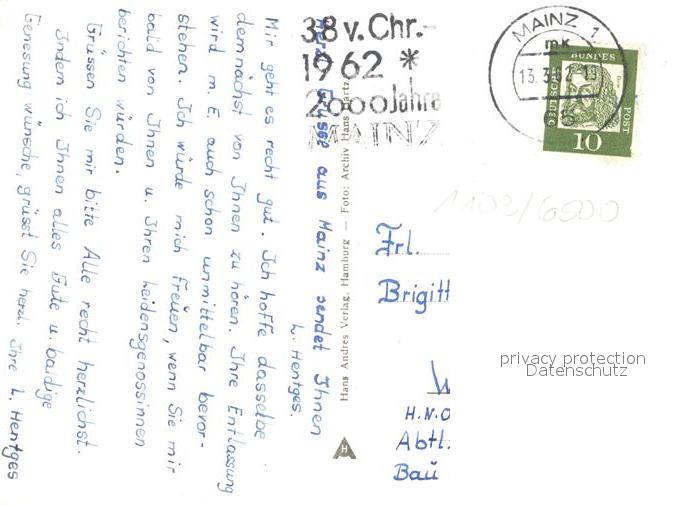 Herzl. Grüsse aus Mainz sendet Ihnen
L. Hentges.
Mir geht es recht gut. Ich hoffe dasselbe
demnächst von Ihnen zu hören. Ihre Entlassung
wird m. E. auch schon unmittelbar bevor-
stehen. Ich würde mich freuen, wenn Sie mir
bald von Ihnen u. Ihren Leidensgenossinnen
berichten würden.
Grüssen Sie mir bitte Alle recht herzlichst.
Indem ich Ihnen alles Gute u. baldige
Genesung wünsche, grüsst Sie herzl. Ihre L. Hentges
Hans Andres Verlag, Hamburg — Foto: Archiv Hans Hartz
H
38 v. Chr.-
1962 *
2000 Jahre
MAINZ
MAINZ 1
mk
13.3.62-13
DEUTSCHE
BUNDES
POST
10
1102/6500
Frl.
Brigitt
H.N.O
Abtl.
Bau
privacy protection
Datenschutz